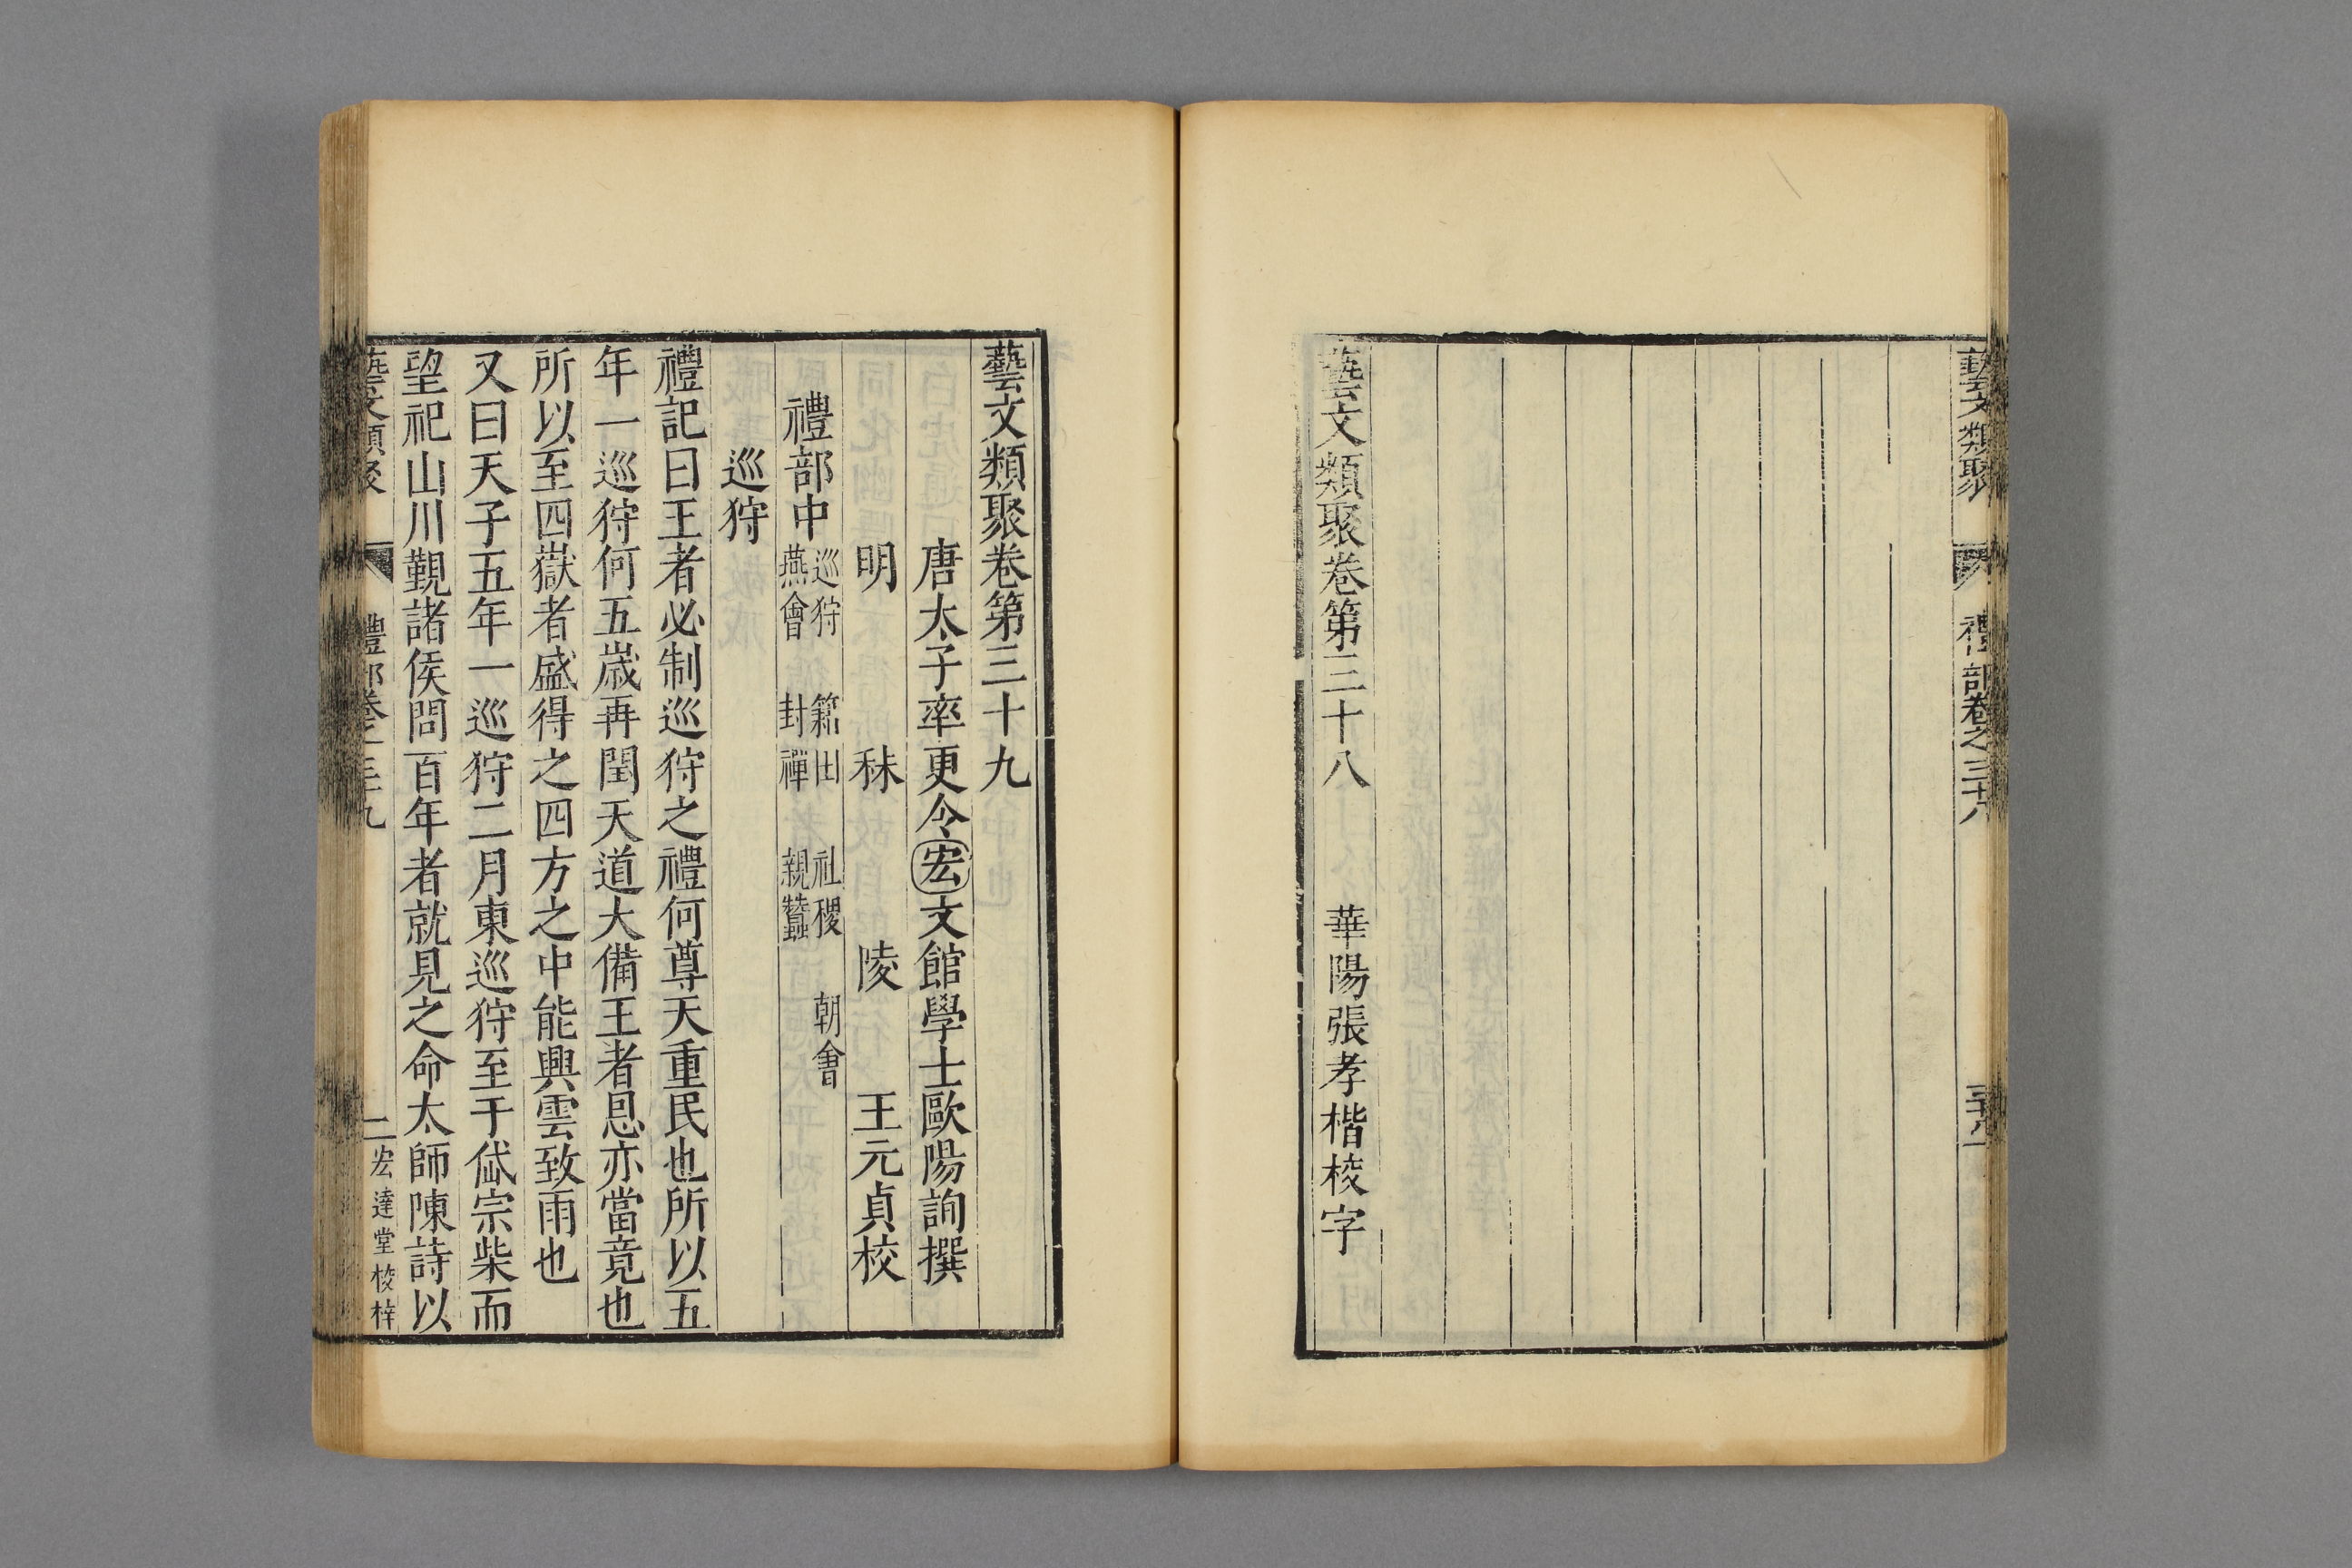 藝文類聚 禮部卷之三十八
藝文類聚卷第三十八 華陽張孝楷校字
藝文類聚卷第三十九
唐太子率更令宏文館學士歐陽詢撰
明 秣陵 王元貞校
禮部中 巡狩 籍田 社稷 朝會
燕會 封禪 親蠶
巡狩
禮記曰王者必制巡狩之禮何尊天重民也所以五
年一巡狩何五歳再閏天道大備王者恩亦當竟也
所以至四嶽者盛得之四方之中能興雲致雨也
又曰天子五年一巡狩二月東巡狩至于岱宗柴而
望祀山川覲諸侯問百年者就見之命太師陳詩以
藝文類聚 禮部卷之三十九 一 宏達堂校梓